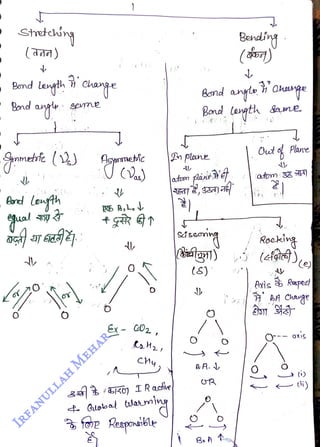 1
Stretching
(तनन)
Bond Length में Change
Bond angle same
Bending
(बंकन)
Bond angle में change
Bond Length same
Symmetric (Vs)
Bond Length
equal रूप से
बढ़ती या घटती है।
or
or
Asymmetric
(Vas)
एक B.L. ↓
+ दूसरे की ↑
Ex - CO2,
C2H2,
CH4
इसी के कारण IR active
& Global Warming
के लिए Responsible
है
In plane
atom plane में ही
रहता है, उठता नहीं
है।
Out of Plane
atom उठ जाता
है।
Scissoring
(S)
B.A. ↓
OR
B.A ↑
Rocking
(e)
Axis के Respect
में BA Change
होगा
axis
(i)
(ii)
IRFANULLAH MEHAR